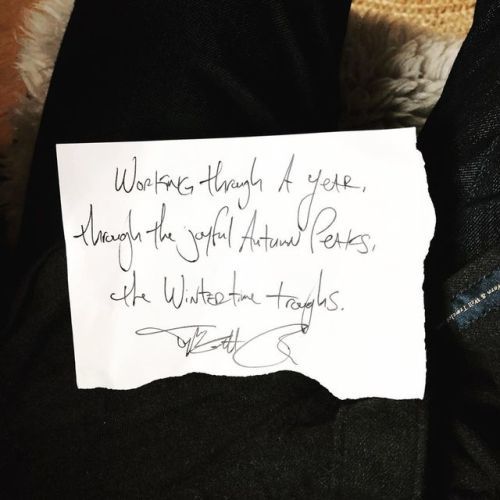 Working through A year,
through the joyful Autumn Peaks,
the Wintertime troughs.